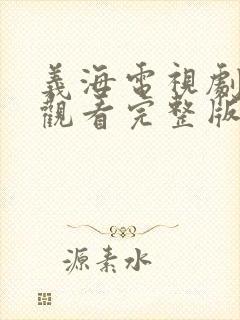 義海電視劇
觀看完整版
源素水